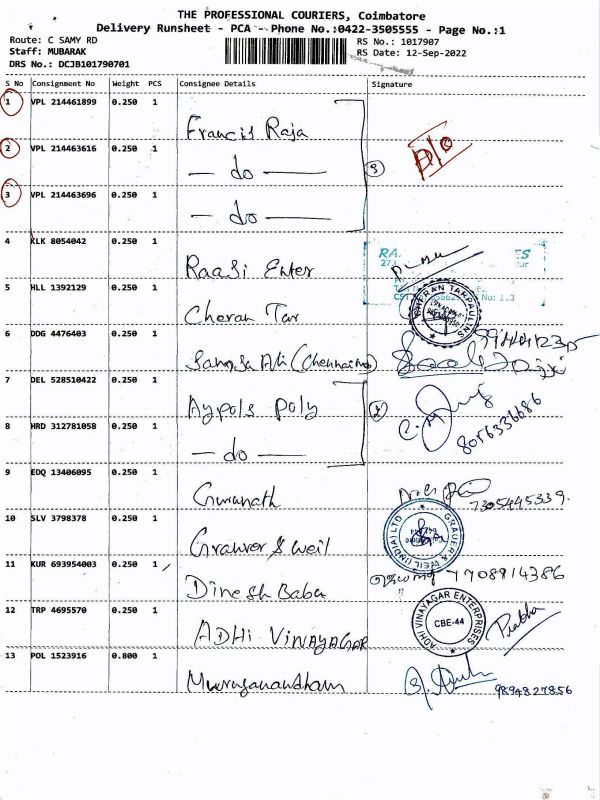 THE PROFESSIONAL COURIERS, Coimbatore
Delivery Runsheet - PCA - Phone No.:0422-3505555 - Page No.:1
Route: C SAMY RD
RS No.: 1017907
Staff: MUBARAK
RS Date: 12-Sep-2022
DRS No.: DCJB101790701
S No Consignment No Weight PCS Consignee Details Signature
1 VPL 214461899 0.250 1 Francis Raja
2 VPL 214463616 0.250 1 — do —
3 VPL 214463696 0.250 1 — do —
3
4 KLK 8054042 0.250 1 Raasi Enter
5 HLL 1392129 0.250 1 Cheran Tar
CHERAN TARPAULINS
6 DDG 4476403 0.250 1
7 DEL 528510422 0.250 1 Aypols Poly
8 HRD 312781058 0.250 1 — do —
8056336686
9 EDQ 13406095 0.250 1 Gurunath
7305445339.
10 SLV 3798378 0.250 1 Grawer & Weil
GRAUER & WEIL (INDIA) LTD
11 KUR 693954003 0.250 1 Dinesh Babu
7708914386
12 TRP 4695570 0.250 1 ADHi VINAYAGAR
ADHI VINAYAGAR ENTERPRISES
CBE-44
Prabha
13 POL 1523916 0.800 1 Muruganandham
9894827856